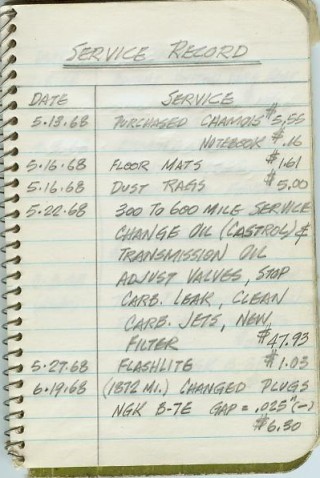 SERVICE RECORD
DATE SERVICE
5·13·68 PURCHASED CHAMOIS $5.55
NOTEBOOK $.16
5·16·68 FLOOR MATS $1.61
5·16·68 DUST RAGS $5.00
5·22·68 300 TO 600 MILE SERVICE
CHANGE OIL (CASTROL) &
TRANSMISSION OIL
ADJUST VALVES, STOP
CARB. LEAK, CLEAN
CARB. JETS, NEW
FILTER $47.93
5·27·68 FLASHLITE $1.03
6·19·68 (1872 MI.) CHANGED PLUGS
NGK B-7E GAP = .025" (-)
$6.30